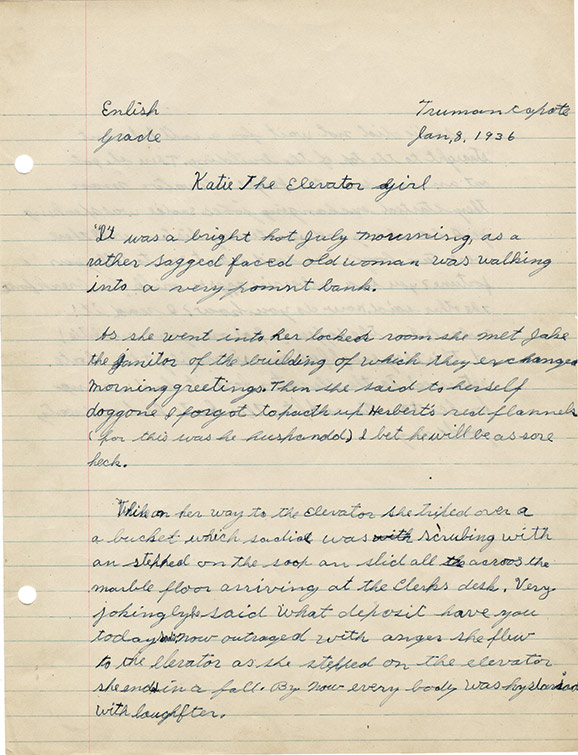 Enlish Truman Capote
Grade Jan, 8, 1936
Katie The Elevator Girl
"It was a bright hot July mourning, as a
rather sagged faced old woman was walking
into a very pomnt bank.
As she went into her locked room she met Jake
the Janitor of the building of which they exchanged
morning greetings. Then she said to herself
doggone I forgot to patch up Herbert's red flannels
(for this was he husbandd) I bet he will be as sore
heck.
While on her way to the elevator she triped over a
a bucket which was with scrubing with
an stepped on the soap an slid all the across the
marble floor arriving at the Clerks desk. Very
jokingly said What deposit have you
today now outraged with anger she flew
to the elevator as she stepped on the elevator
she in a fall. By now every body was
with laughfter.